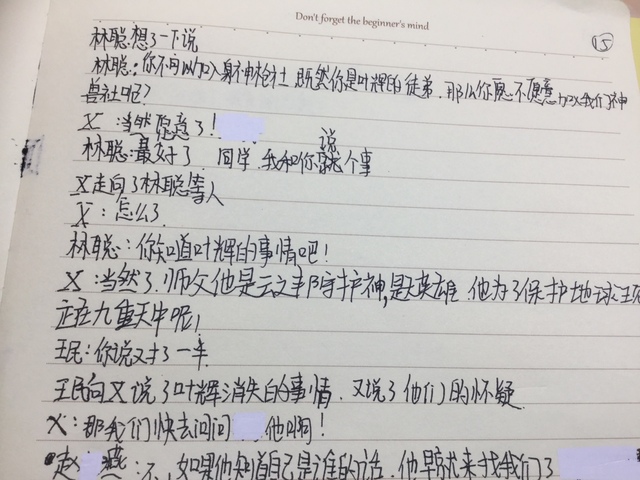 Don't forget the beginner's mind
15
林聪想了一下说
林聪：你不可以加入身神枪社，既然你是叶辉的徒弟，那么你愿不愿意加入我们神
兽社呢？
X：当然愿意了！
林聪：最好了 同学，我和你说个事
X走向了林聪等人
X：怎么了
林聪：你知道叶辉的事情吧！
X：当然了，师父他是云之 守护神，是英雄，他为了保护地球 现
在九重天中呢！
王民：你说对了一半
王民向X说了叶辉消失的事情，又说了他们的怀疑
X：那我们快去问问 他啊！
赵 燕：不，如果他知道自己是谁的话，他早就来找我们了